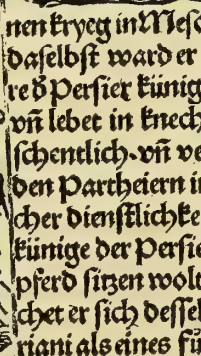 nen kryeg in Meso
daselbst ward er
re d᷒ Persier künig
vn̄ lebet in knech
schentlich. vn̄ ve
den Partheiern i
cher dienstlichke
künige der Persie
pferd sitzen wolt
chet er sich dessel
riani als eines fü